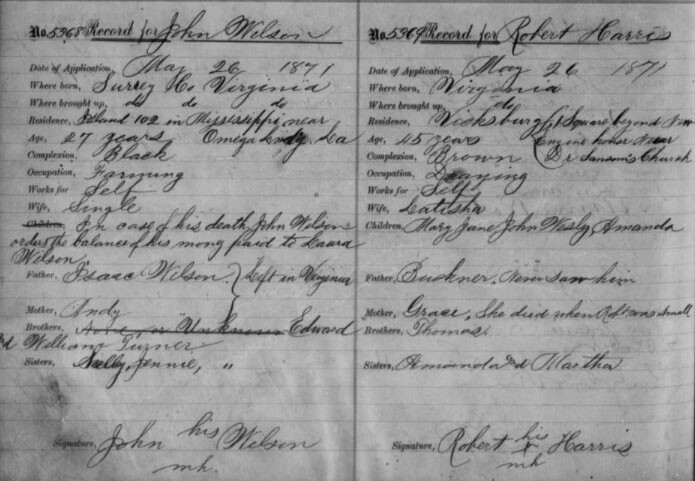 No. 5368 Record for John Wilson
Date of Application, May 26 1871
Where born, Surrey Co Virginia
Where brought up, do do do
Residence, Island 102 in Mississippi near
Age, 27 years Omega Lndg La
Complexion, Black
Occupation, Farming
Works for Self
Wife, Single
Children, In case of his death, John Wilson
orders the balance of his mony paid to Laura
Wilson
Father, Isaac Wilson } Left in Virginia
Mother, Andy
Brothers, Unknown Edward
nd William Turner
Sisters, Sally, Jennie, "
Signature, John his Wilson
mk.
No. 5369 Record for Robert Harris
Date of Application, May 26 1871
Where born, Virginia
Where brought up, do
Residence, Vicksburg, 1 Square beyond New
Age, 45 years Engine house Near
Complexion, Brown Dr Sansom's Church
Occupation, Draying
Works for Self
Wife, Latisha
Children, Mary Jane John Wesly, Amanda
Father, Buckner, Never saw him
Mother, Grace, She died when Robt was small
Brothers, Thomas
Sisters, Amanda nd Martha
Signature, Robert his x Harris
mk